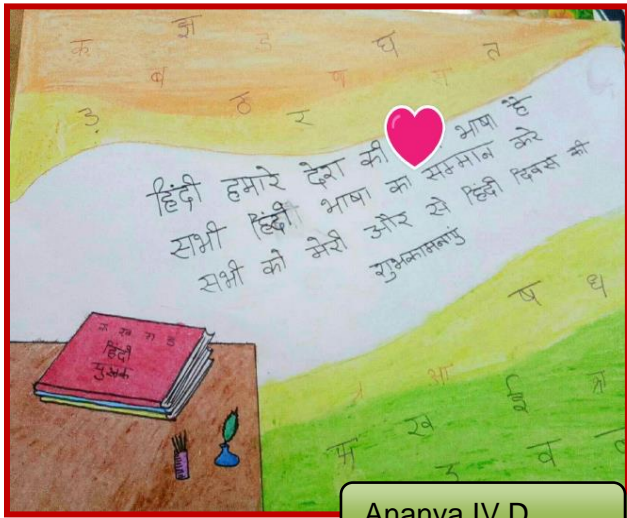 क ज्ञ ड घ त
ब ष ग
ड़ ठ र
हिंदी हमारे देश की भाषा है
सभी हिंदी भाषा का सम्मान करे
सभी को मेरी और से हिंदी दिवस की
शुभकामनाएं
ष ध
क ख ग ड
हिंदी
पुस्तक
आ
ख ई
व
Ananya IV D